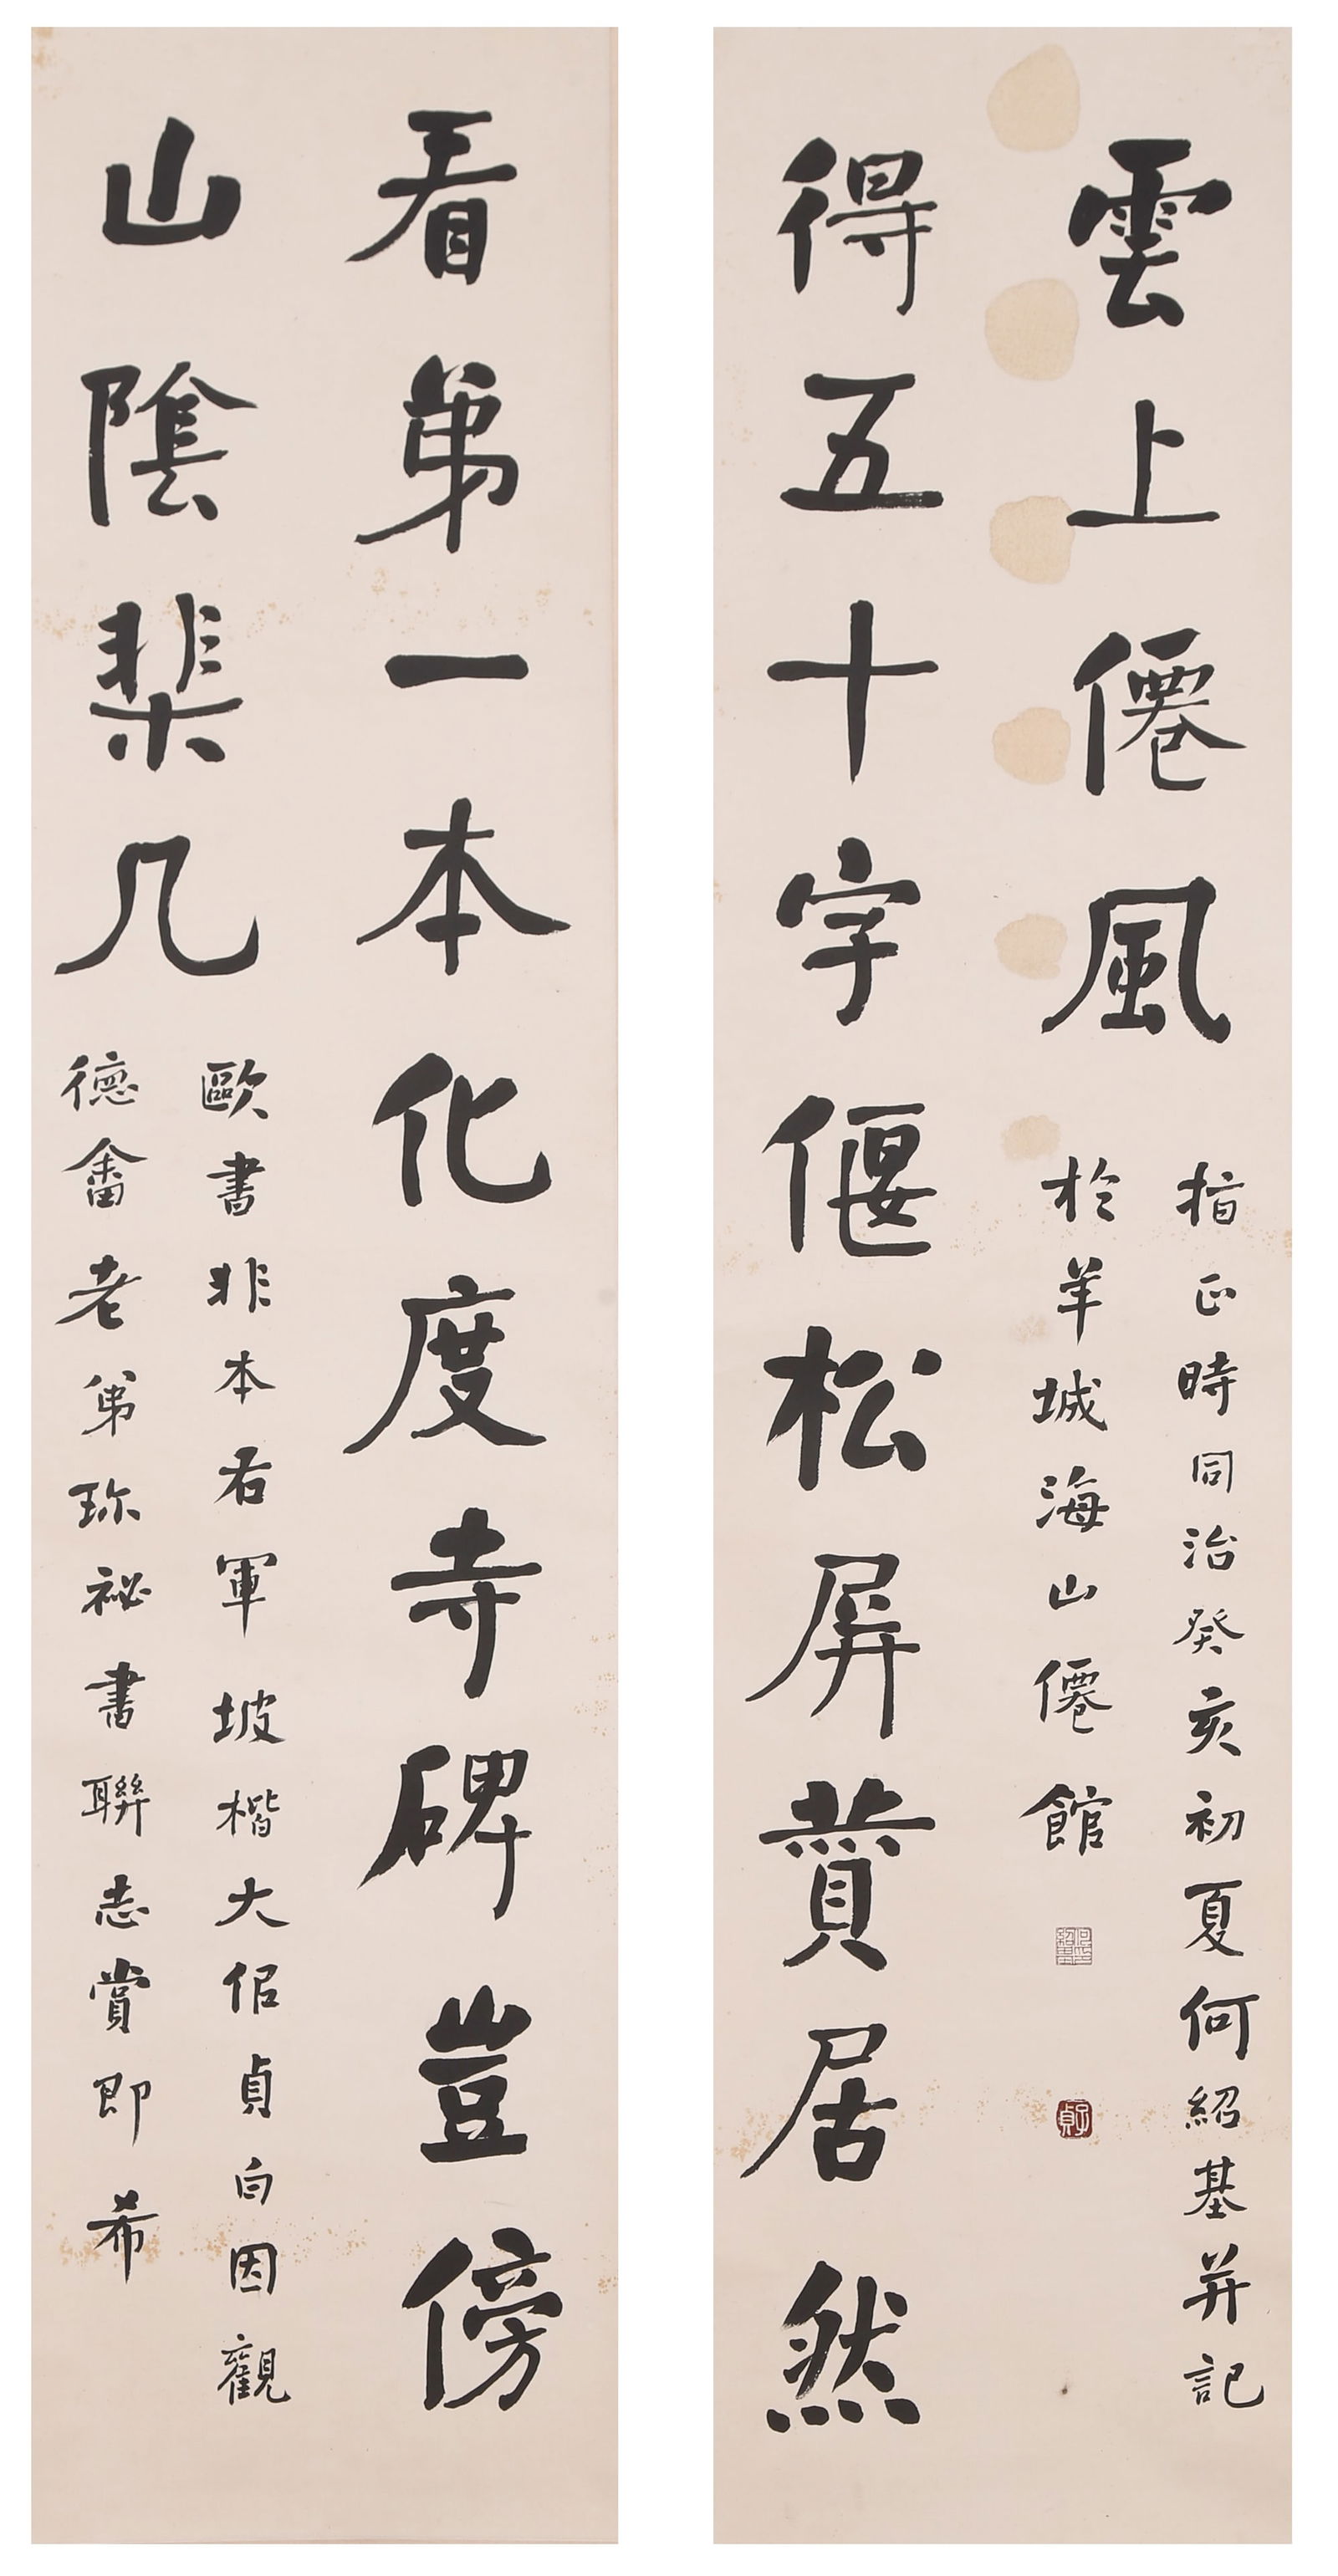 看弟一本化度寺碑豈傍
山陰棐几
歐書非本右軍坡楷大佀貞白因觀
德畬老弟珍祕書聯志賞即希
得五十字偃松屏贊居然
雲上僊風
指正時同治癸亥初夏何紹基并記
於羊城海山僊館
何紹基印
子貞